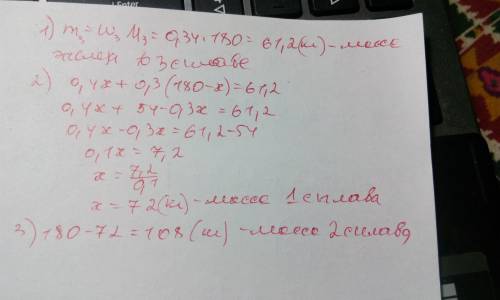 1) m₃ = w₃ M₃ = 0,34 · 180 = 61,2 (кг) - масса
железа в 3 сплаве
2) 0,4x + 0,3 (180 - x) = 61,2
0,4x + 54 - 0,3x = 61,2
0,4x - 0,3x = 61,2 - 54
0,1x = 7,2
x = 7,2/0,1
x = 72 (кг) - масса 1 сплава
3) 180 - 72 = 108 (кг) - масса 2 сплава